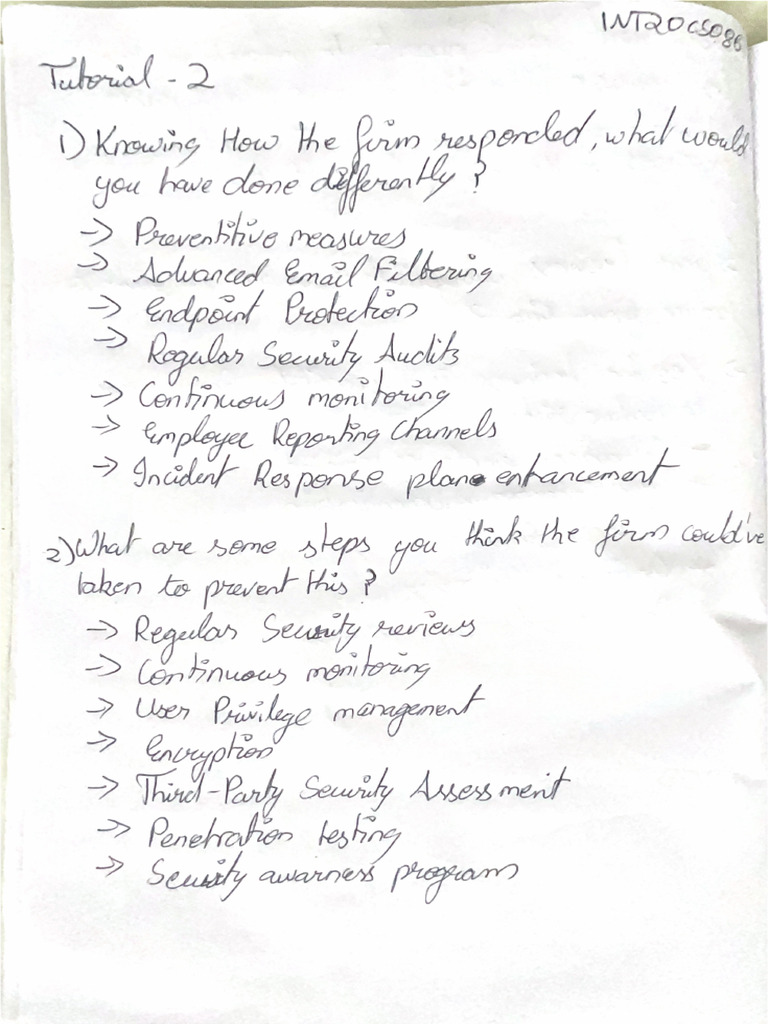 1NT20CS086
Tutorial - 2
1) Knowing How the firm responded, what would
you have done differently?
-> Preventitive measures
-> Advanced Email Filtering
-> Endpoint Protection
-> Regular Security Audits
-> Continuous monitoring
-> Employee Reporting Channels
-> Incident Response plan enhancement
2) What are some steps you think the firm could've
taken to prevent this?
-> Regular Security reviews
-> Continuous monitoring
-> User Privilege management
-> Encryption
-> Third-Party Security Assessment
-> Penetration testing
-> Security awarness program